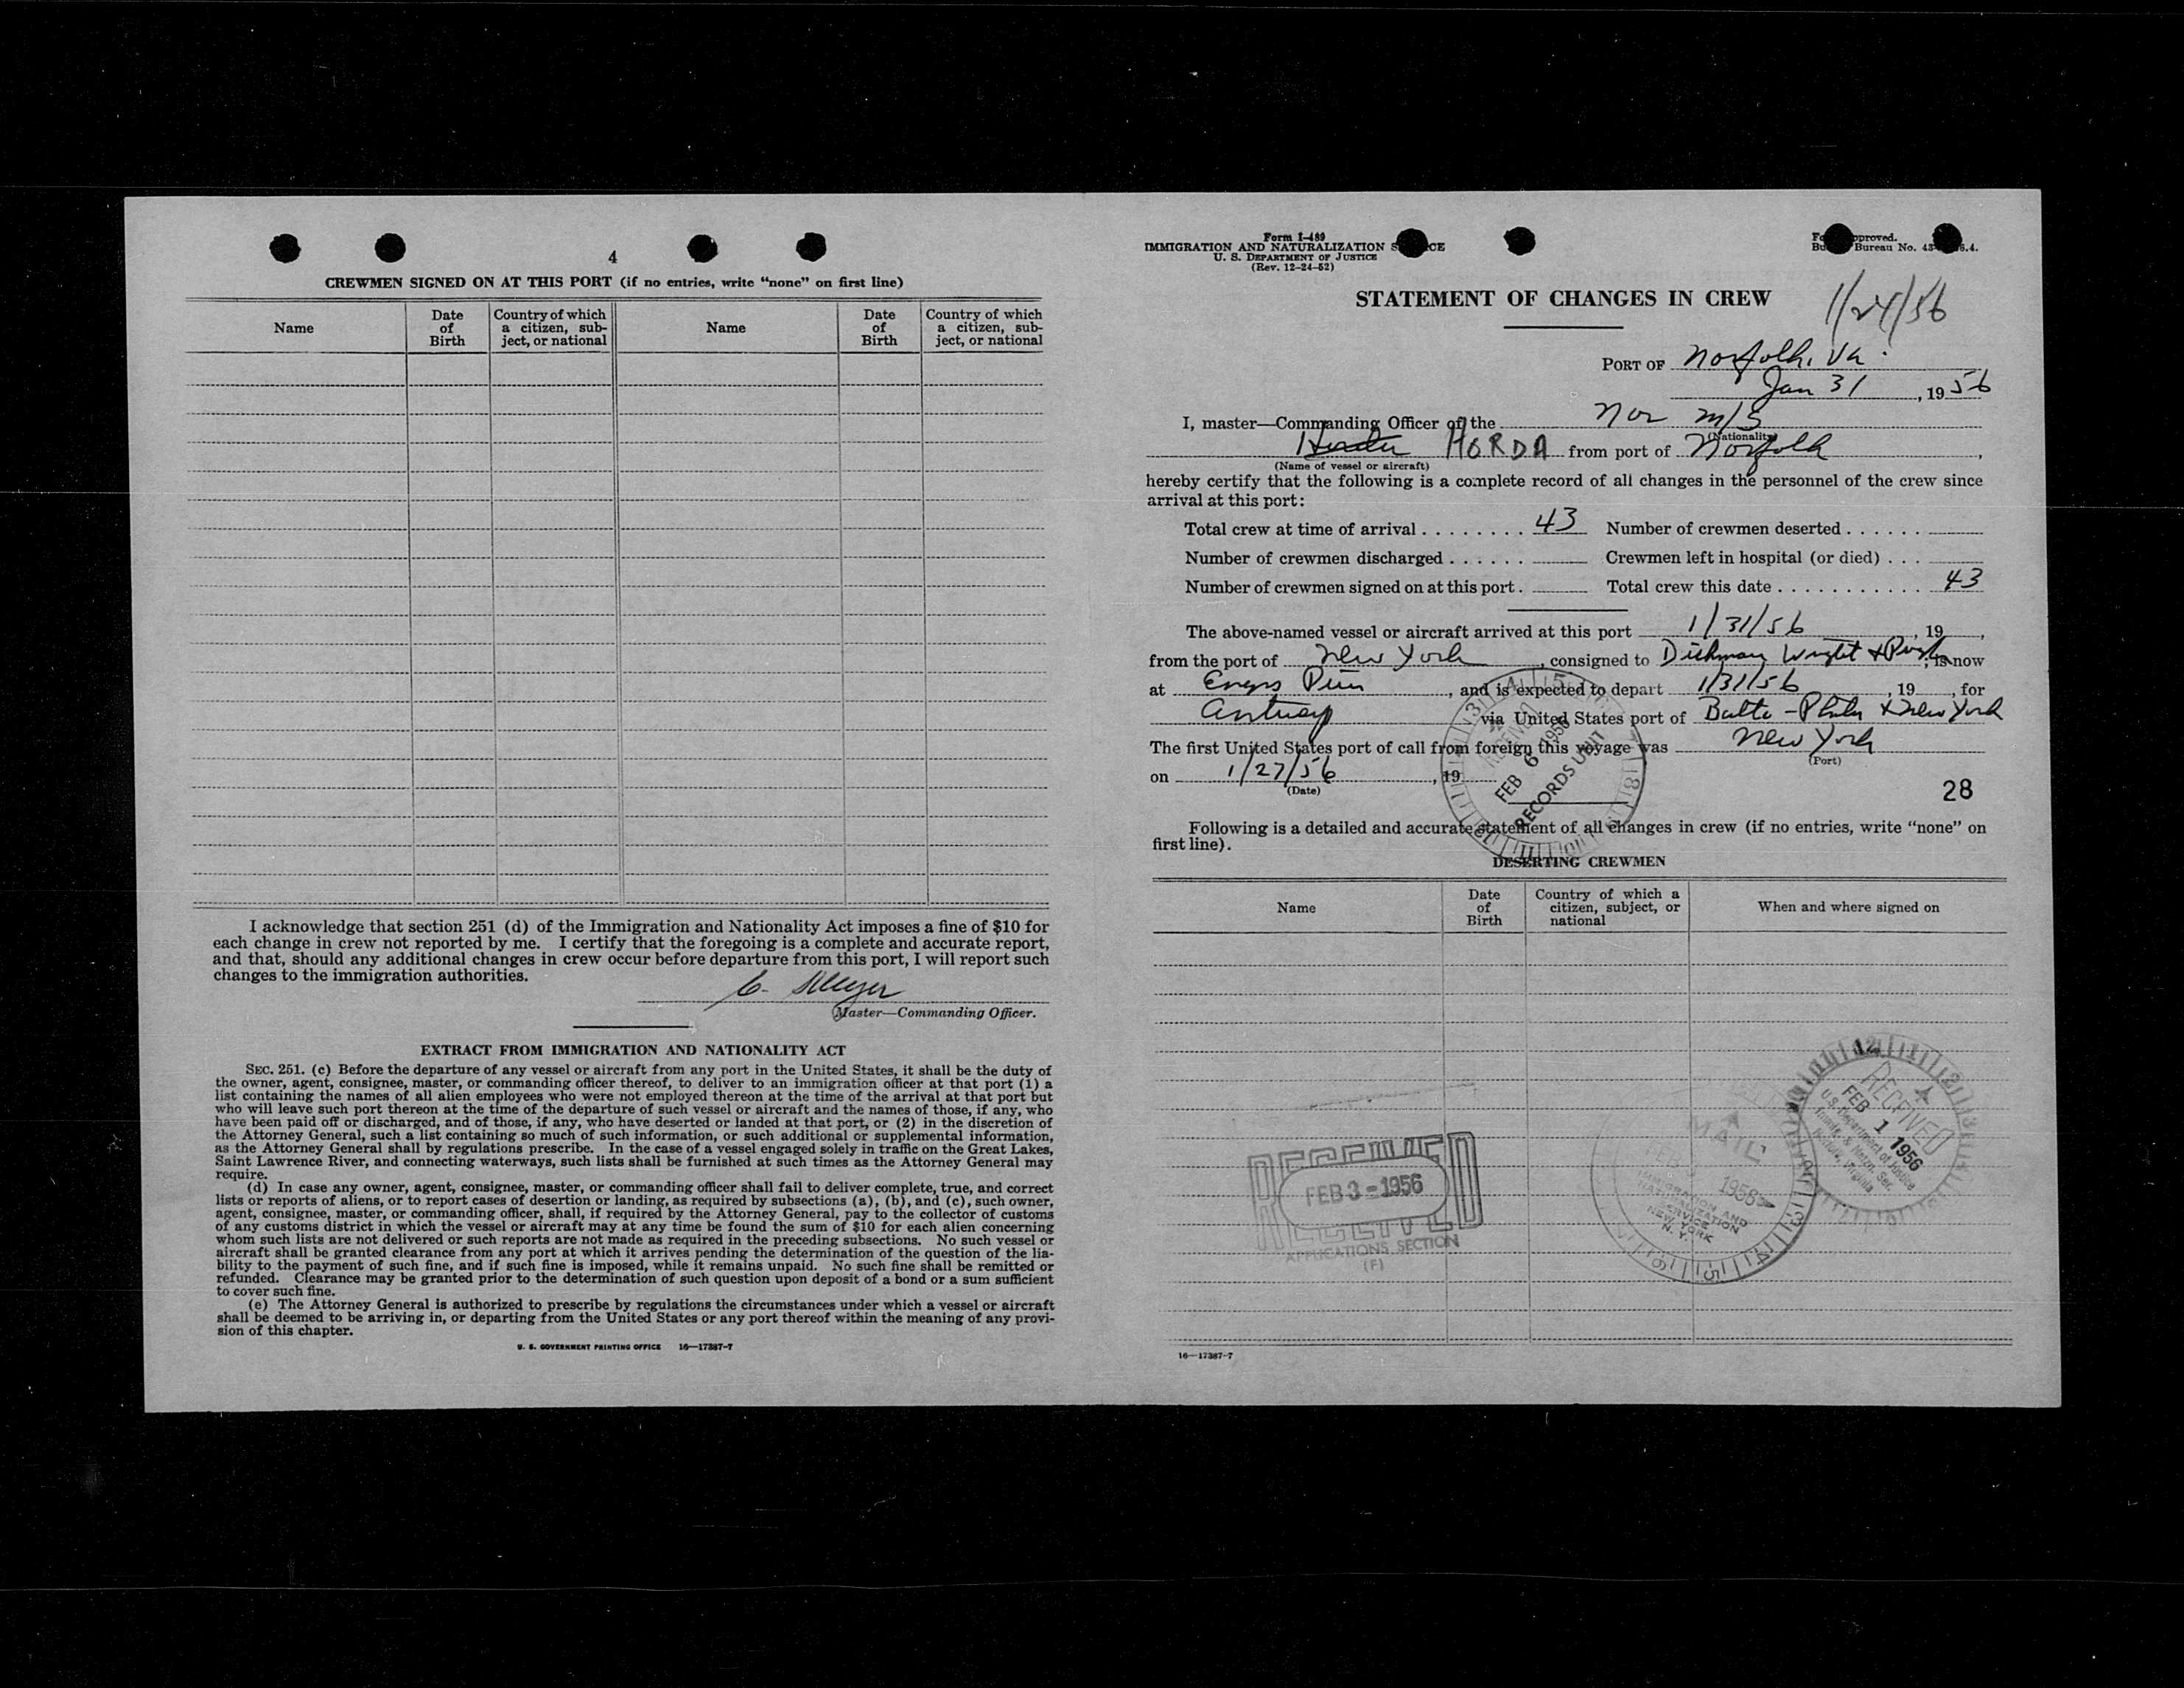 4
CREWMEN SIGNED ON AT THIS PORT (if no entries, write "none" on first line)
Name
Date of Birth
Country of which a citizen, subject, or national
Name
Date of Birth
Country of which a citizen, subject, or national
I acknowledge that section 251 (d) of the Immigration and Nationality Act imposes a fine of $10 for
each change in crew not reported by me. I certify that the foregoing is a complete and accurate report,
and that, should any additional changes in crew occur before departure from this port, I will report such
changes to the immigration authorities.
Master—Commanding Officer.
EXTRACT FROM IMMIGRATION AND NATIONALITY ACT
SEC. 251. (c) Before the departure of any vessel or aircraft from any port in the United States, it shall be the duty of
the owner, agent, consignee, master, or commanding officer thereof, to deliver to an immigration officer at that port (1) a
list containing the names of all alien employees who were not employed thereon at the time of the arrival at that port but
who will leave such port thereon at the time of the departure of such vessel or aircraft and the names of those, if any, who
have been paid off or discharged, and of those, if any, who have deserted or landed at that port, or (2) in the discretion of
the Attorney General, such a list containing so much of such information, or such additional or supplemental information,
as the Attorney General shall by regulations prescribe. In the case of a vessel engaged solely in traffic on the Great Lakes,
Saint Lawrence River, and connecting waterways, such lists shall be furnished at such times as the Attorney General may
require.
(d) In case any owner, agent, consignee, master, or commanding officer shall fail to deliver complete, true, and correct
lists or reports of aliens, or to report cases of desertion or landing, as required by subsections (a), (b), and (c), such owner,
agent, consignee, master, or commanding officer, shall, if required by the Attorney General, pay to the collector of customs
of any customs district in which the vessel or aircraft may at any time be found the sum of $10 for each alien concerning
whom such lists are not delivered or such reports are not made as required in the preceding subsections. No such vessel or
aircraft shall be granted clearance from any port at which it arrives pending the determination of the question of the lia-
bility to the payment of such fine, and if such fine is imposed, while it remains unpaid. No such fine shall be remitted or
refunded. Clearance may be granted prior to the determination of such question upon deposit of a bond or a sum sufficient
to cover such fine.
(e) The Attorney General is authorized to prescribe by regulations the circumstances under which a vessel or aircraft
shall be deemed to be arriving in, or departing from the United States or any port thereof within the meaning of any provi-
sion of this chapter.
U. S. GOVERNMENT PRINTING OFFICE 16—17387-7
Form I-489
IMMIGRATION AND NATURALIZATION
U. S. DEPARTMENT OF JUSTICE
(Rev. 12-24-52)
Bureau No.
STATEMENT OF CHANGES IN CREW
1/24/56
PORT OF Norfolk, Va.
Jan 31, 1956
I, master—Commanding Officer of the Nor M/S
(Nationality)
HORDA from port of Norfolk,
(Name of vessel or aircraft)
hereby certify that the following is a complete record of all changes in the personnel of the crew since
arrival at this port:
Total crew at time of arrival . . . . . . . . 43 Number of crewmen deserted . . . . . .
Number of crewmen discharged . . . . . . Crewmen left in hospital (or died) . . .
Number of crewmen signed on at this port . Total crew this date . . . . . . . . . . . . 43
The above-named vessel or aircraft arrived at this port 1/31/56, 19 ,
from the port of New York, consigned to Wright + , is now
at , and is expected to depart 1/31/56, 19 , for
Antwerp via United States port of Balto - Phila + New York
The first United States port of call from foreign this voyage was New York
(Port)
on 1/27/56, 19
(Date)
28
FEB 6 1956
RECORDS UNIT
Following is a detailed and accurate statement of all changes in crew (if no entries, write "none" on
first line).
DESERTING CREWMEN
Name
Date of Birth
Country of which a citizen, subject, or national
When and where signed on
RECEIVED
FEB 1 1956
U.S. Department of Justice
Immig. & Natzn. Ser.
Norfolk, Virginia
RECEIVED
FEB 3 - 1956
APPLICATIONS SECTION
(F)
MAIL
FEB 1956
IMMIGRATION AND
NATURALIZATION
SERVICE
NEW YORK
N. Y.
16—17387-7